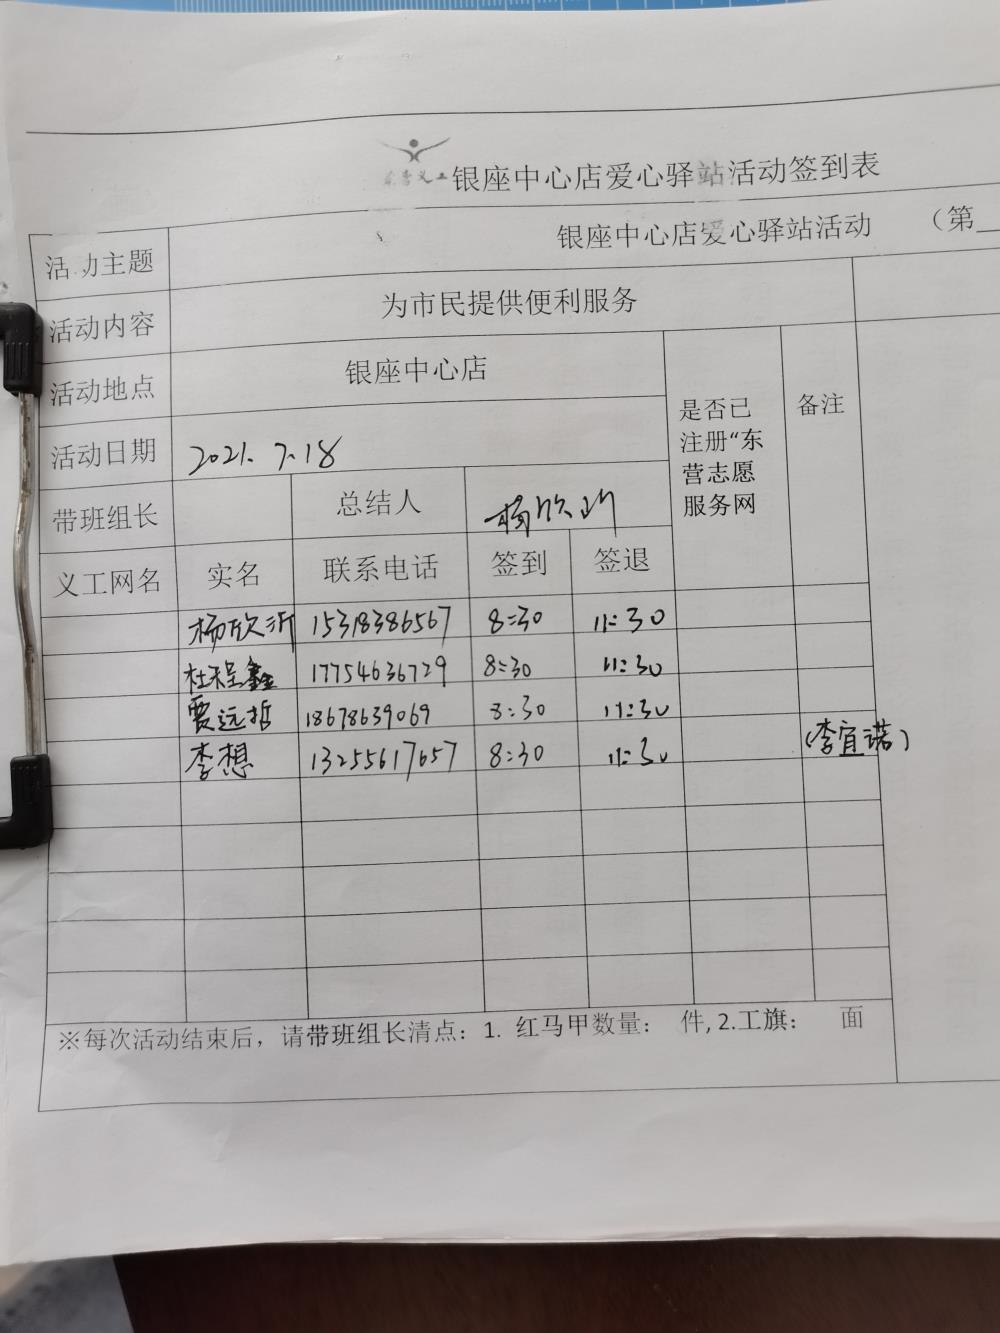 东营义工 银座中心店爱心驿站活动签到表
活动主题 银座中心店爱心驿站活动 （第
活动内容 为市民提供便利服务
活动地点 银座中心店
是否已注册“东营志愿服务网
备注
活动日期 2021.7.18
带班组长 总结人 杨欣沂
义工网名 实名 联系电话 签到 签退
杨欣沂 15318386567 8:30 11:30
杜程鑫 17754636729 8:30 11:30
贾远哲 18678639069 8:30 11:30
李想 13255617657 8:30 11:30 (李宜诺)
※每次活动结束后，请带班组长清点：1. 红马甲数量： 件, 2.工旗： 面